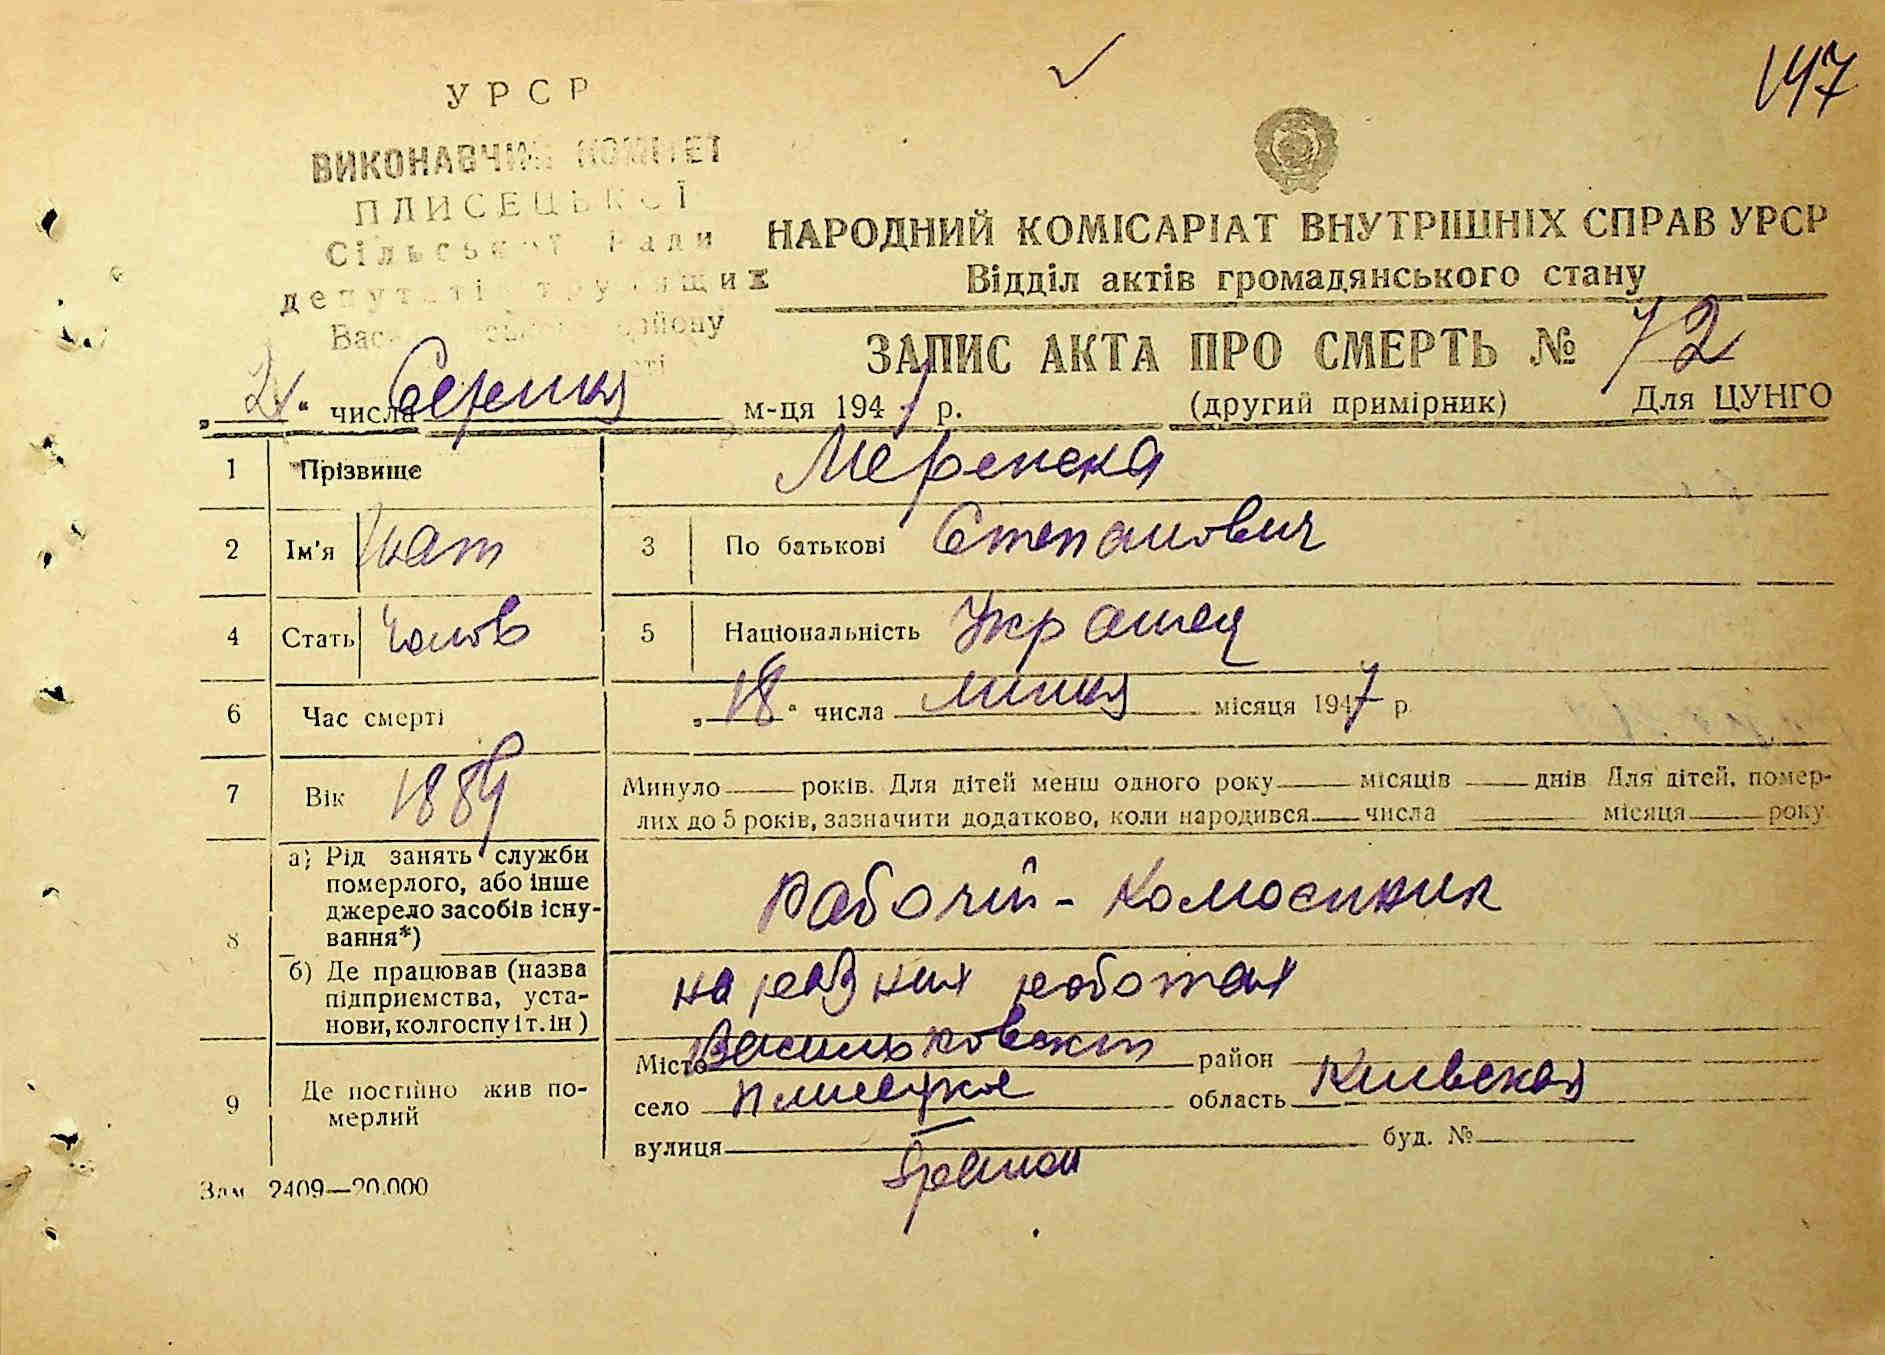 147
УРСР
ВИКОНАВЧИЙ КОМІТЕТ
ПЛИСЕЦЬКОЇ
Сільської Ради
депутатів трудящих
району
НАРОДНИЙ КОМІСАРІАТ ВНУТРІШНІХ СПРАВ УРСР
Відділ актів громадянського стану
ЗАПИС АКТА ПРО СМЕРТЬ № 72
„ “ числа Серпня м-ця 1947 р. (другий примірник) Для ЦУНГО
1 Прізвище
2 Ім'я Гнат 3 По батькові Степанович
4 Стать Чолов 5 Національність
6 Час смерті „18“ числа липня місяця 1947 р.
7 Вік 1889 Минуло років. Для дітей менш одного року місяців днів Для дітей, помер-
лих до 5 років, зазначити додатково, коли народився числа місяця року
8 а) Рід занять служби
померлого, або інше
джерело засобів існу-
вання*) Рабочій -
б) Де працював (назва
підприємства, уста-
нови, колгоспу і т. ін) на разних роботах
9 Де постійно жив по-
мерлий
Місто Васильковский район
село Плисецкое область Киевская
вулиця буд. №
Зам 2409—20.000